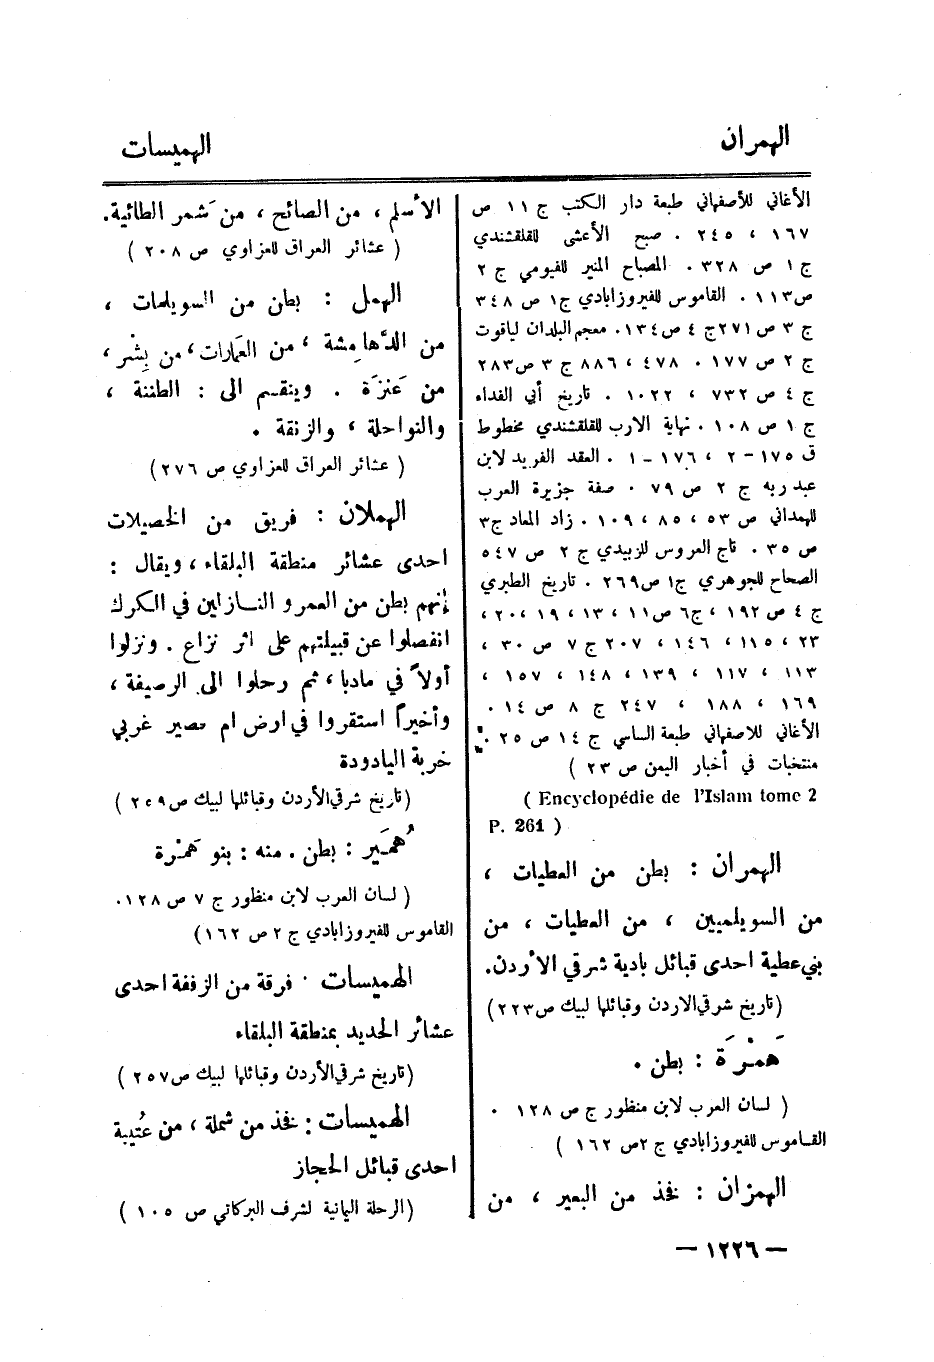 الهمران
الهميسات
الأغاني للأصفهاني طبعة دار الكتب ج ١١ ص
١٦٧ ، ٢٤٥ . صبح الأعشى للقلقشندي
ج ١ ص ٣٢٨ . المصباح المنير للفيومي ج ٢
ص١١٣ . القاموس للفيروزابادي ج١ ص ٣٤٨
ج ٣ ص ٢٧١ج ٤ ص١٣٤. معجم البلدان لياقوت
ج ٢ ص ١٧٧ . ٤٧٨ ، ٨٨٦ ج ٣ ص٢٨٣
ج ٤ ص ٧٣٢ ، ١٠٢٢ . تاريخ أبي الفداء
ج ١ ص ١٠٨ . نهاية الارب للقلقشندي مخطوط
ق ١٧٥ – ٢ ، ١٧٦ – ١ . العقد الفريد لابن
عبد ربه ج ٢ ص ٧٩ . صفة جزيرة العرب
للهمداني ص ٥٣ ، ٨٥ ، ١٠٩ . زاد المعاد ج٣
ص ٣٥ . تاج العروس للزبيدي ج ٢ ص ٥٤٧
الصحاح للجوهري ج١ ص٢٦٩ . تاريخ الطبري
ج ٤ ص ١٩٢ ، ج٦ ص١١ ، ١٣ ، ١٩ ، ٢٠ ،
٢٣ ، ١١٥ ، ١٤٦ ، ٢٠٧ ج ٧ ص ٣٠ ،
١١٣ ، ١١٧ ، ١٣٩ ، ١٤٨ ، ١٥٧ ،
١٦٩ ، ١٨٨ ، ٢٤٧ ج ٨ ص ١٤ .
الأغاني للاصفهاني طبعة الساسي ج ١٤ ص ٢٥ .
منتخبات في أخبار اليمن ص ٢٣ )
( Encyclopédie de l'Islam tome 2
P. 261 )
الهمران : بطن من العطيات ،
من السويلميين ، من العطيات ، من
بني عطية احدى قبائل بادية شرقي الأردن.
(تاريخ شرقي الاردن وقبائلها لبيك ص٢٢٣)
هَمْرَة : بطن .
( لسان العرب لابن منظور ج ص ١٢٨ .
القاموس للفيروزابادي ج ٢ص ١٦٢ )
الهمزان : فخذ من البعير ، من
الأسلم ، من الصائح ، من شَمر الطائية.
( عشائر العراق للعزاوي ص ٢٠٨ )
الهمل : بطن من السويلمات ،
من الدَّهامِشة ، من العمارات ، من بِشْر ،
من عَنَزَة . وينقسم الى : الطننة ،
والنواحلة ، والزنقة .
( عشائر العراق للعزاوي ص ٢٧٦)
الهملان : فريق من الخصيلات
احدى عشائر منطقة البلقاء ، ويقال :
إنهم بطن من العمرو النازلين في الكرك
انفصلوا عن قبيلتهم على اثر نزاع . ونزلوا
أولاً في مادبا ، ثم رحلوا الى الرصيفة ،
وأخيراً استقروا في ارض ام مصير غربي
خربة اليادودة
(تاريخ شرقي الأردن وقبائلها لبيك ص٢٥٩ )
هُمَير : بطن . منه : بنو هَمْرة
( لسان العرب لابن منظور ج ٧ ص ١٢٨ .
القاموس للفيروزابادي ج ٢ ص ١٦٢)
الهميسات · فرقة من الزفقة احدى
عشائر الحديد بمنطقة البلقاء
(تاريخ شرقي الأردن وقبائلها لبيك ص٢٥٧ )
الهميسات : فخذ من شملة ، من عُتيبة
احدى قبائل الحجاز
(الرحلة اليمانية لشرف البركاتي ص ١٠٥ )
— ١٢٢٦ —